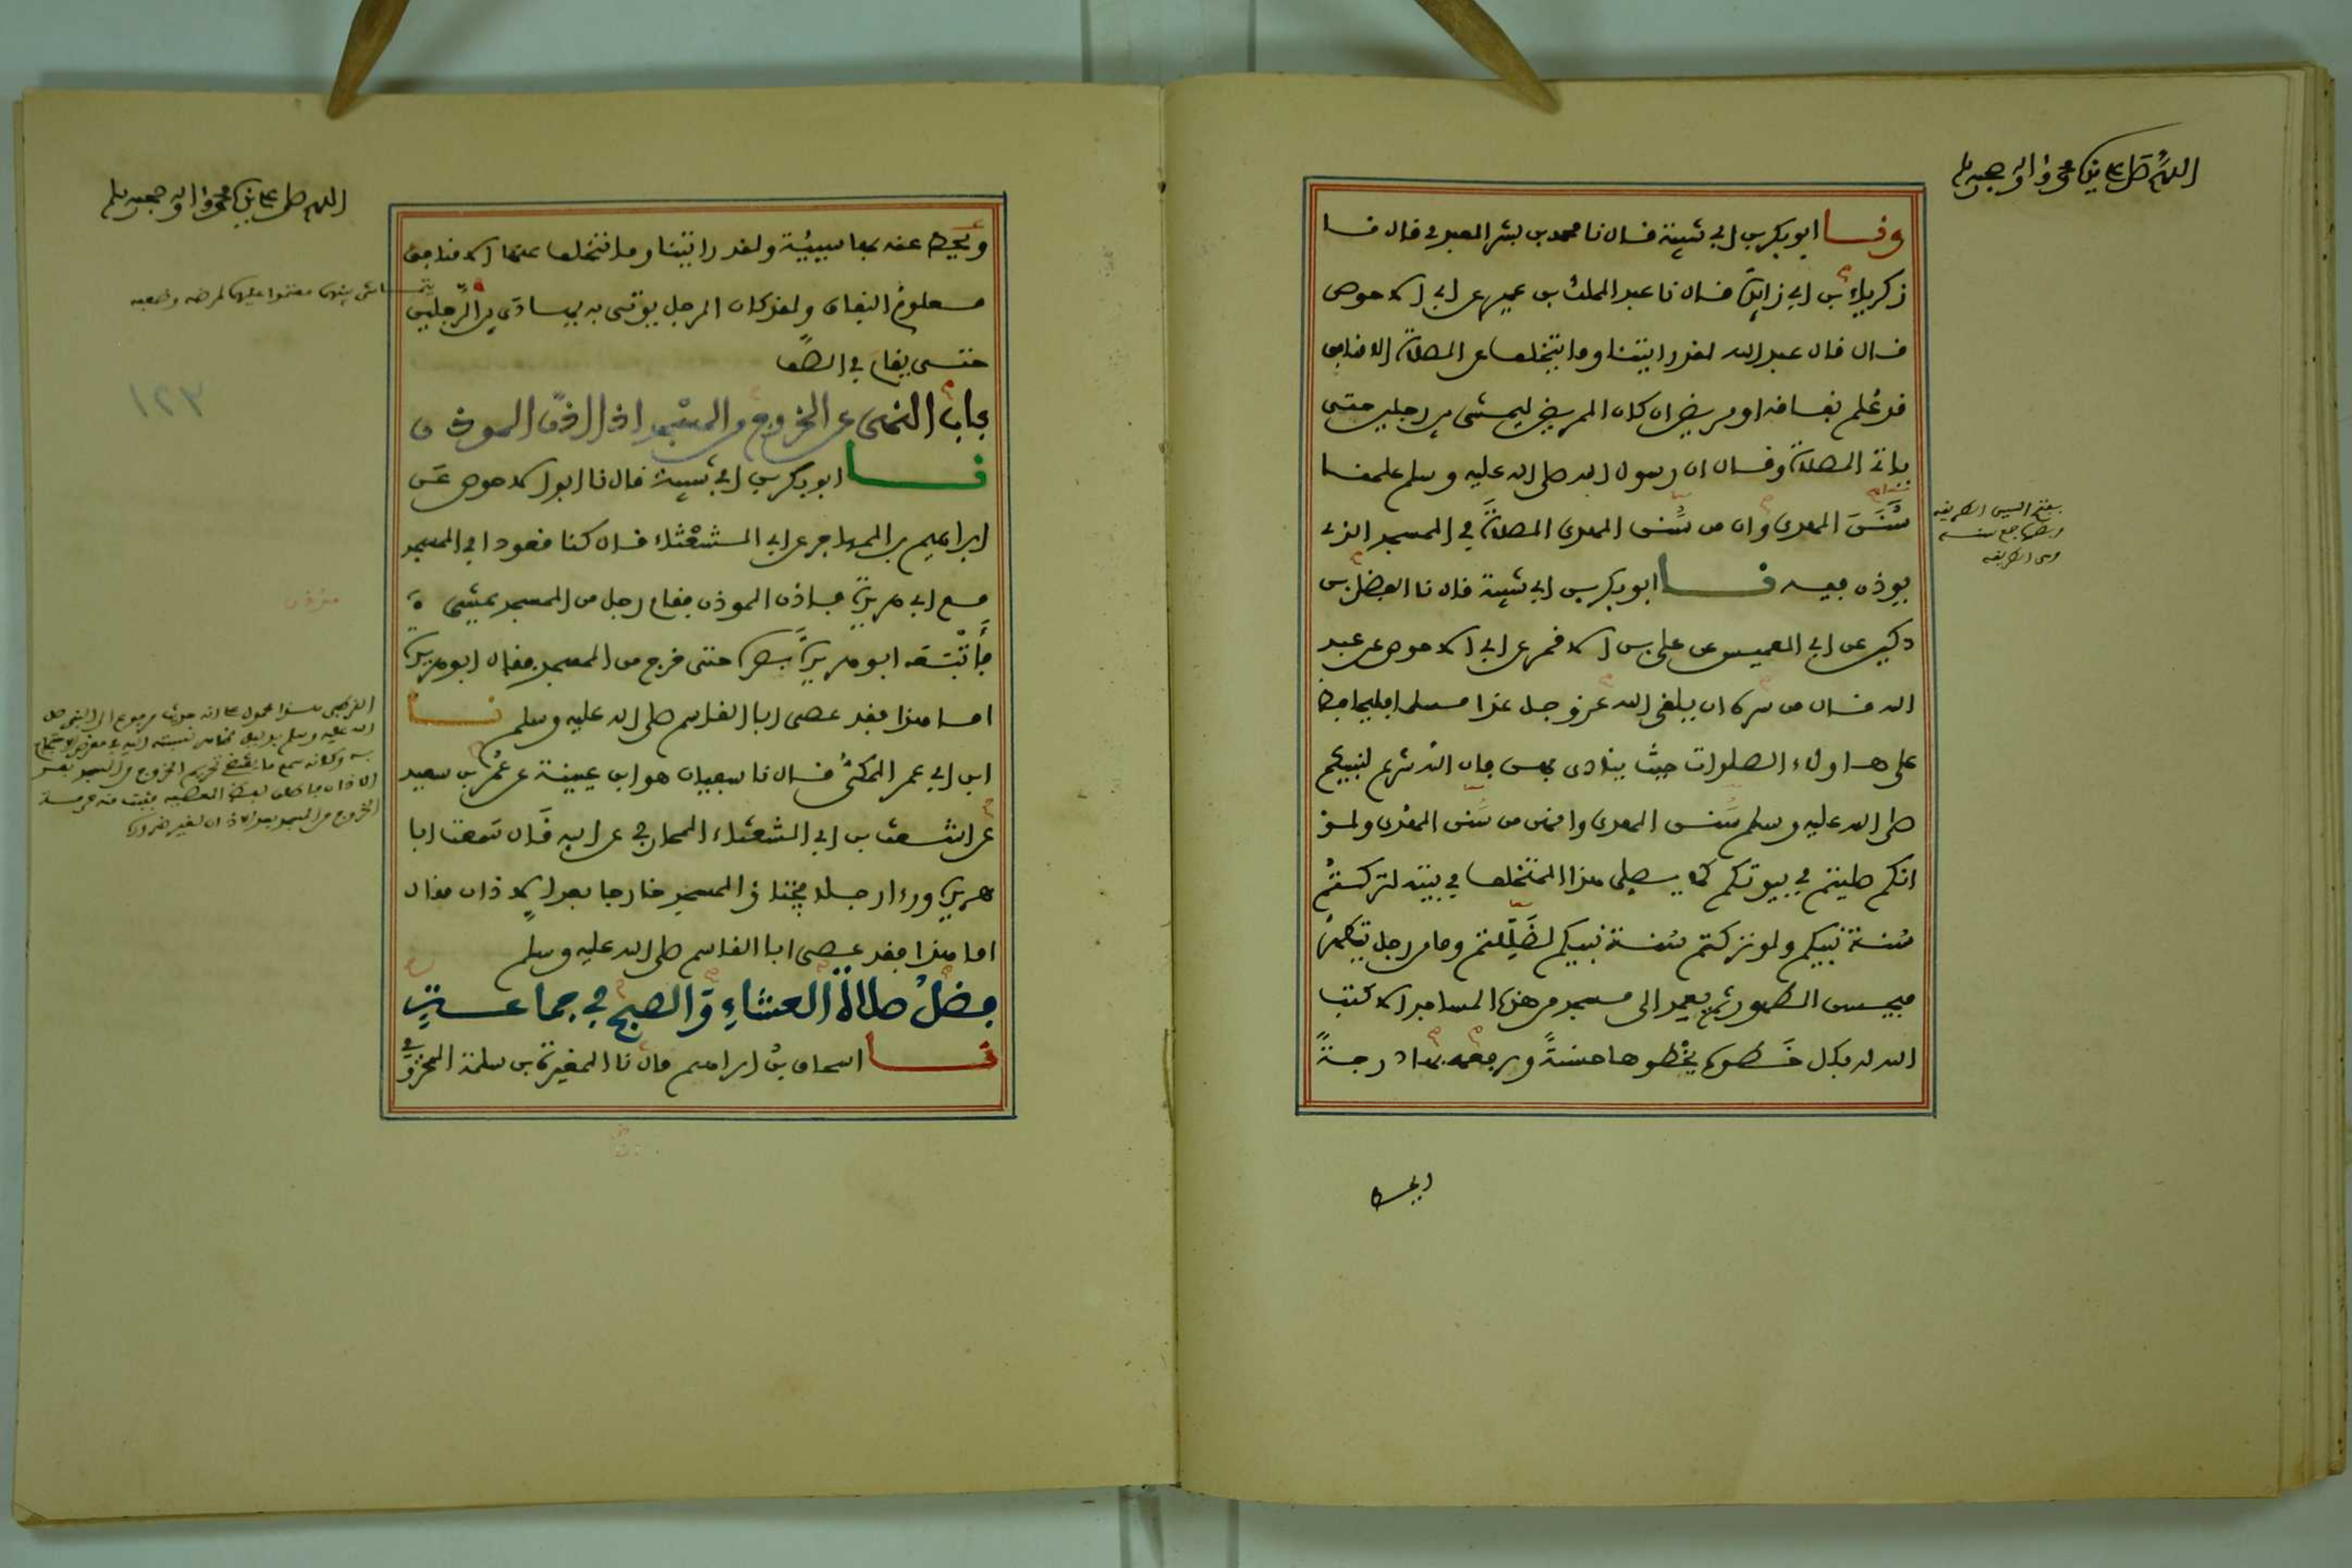 اللهم صل على نبينا محمد واله وصحبه وسلم
ونا ابو بكر بن ابي شيبة قال نا محمد بن بشر العبدي قال نا
زكرياء بن ابي زايدة قال نا عبد الملك بن عمير عن ابي الاحوص
قال قال عبد الله لقد رايتنا وما يتخلف عن الصلاة الا منافق
قد عُلم نفاقه او مريض ان كان المريض ليمشي بين رجلين حتى
ياتي الصلاة وقال ان رسول الله صلى الله عليه وسلم علمنا
سُنَنَ الهدى وان من سُنن الهدى الصلاةَ في المسجد الذي
يوذن فيه نا ابو بكر بن ابي شيبة قال نا الفضل بن
دكين عن ابي العميس عن علي بن الاقمر عن ابي الاحوص عن عبد
الله قال من سره ان يلقى الله عز وجل غدا مسلما فليحافظ
على هاولاء الصلوات حيث ينادى بهن فان الله شرع لنبيكم
صلى الله عليه وسلم سُنن الهدى وانهن من سُنن الهدى ولو
انكم صليتم في بيوتكم كما يصلي هذا المتخلف في بيته لتركتم
سُنة نبيكم ولو تركتم سُنة نبيكم لضَلَلتم وما من رجل يتطهر
فيحسن الطهور ثم يعمد الى مسجد من هذه المساجد الا كتب
الله له بكل خَطوة يخْطوها حسنةً ويرفعه بها درجةً
بفتح السين الطريقه
وبضمها جمع سنه
وهي الطريقه
ويحط
اللهم صل على نبينا محمد واله وصحبه وسلم
ويَحُط عنه بها سيية ولقد رايتنا وما يتخلف عنها الا منافق
معلوم النفاق ولقد كان الرجل يوتى به يهادى بين الرَّجلين
حتى يقام في الصف
باب النهي عن الخروج من المسجد اذا اذن الموذن
نا ابو بكر بن ابي شيبة قال نا ابو الاحوص عَن
ابراهيم بن المهاجر عن ابي الشعْثاء قال كنا قعودا في المسجد
مع ابي هريرة فاذن الموذن فقام رجل من المسجد يمشي
فأَتْبَعَه ابو هريرة بصره حتى خرج من المسجد فقال ابو هريرة
اما هذا فقد عصى ابا القاسم صلى الله عليه وسلم نا
ابن ابي عمر المكيُّ قال نا سفيان هو ابن عيينة عن عُمر بن سعيد
عن اشعث بن ابي الشعثاء المحاربي عن ابيه قَال سَمعت ابا
هريرة وراى رجلا يجتاز المسجد خارجا بعد الاذان فقال
اما هذا فقد عصى ابا القاسم صلى الله عليه وسلم
فضلُ صلاة العشاءِ والصبح في جماعة
نا اسحاق بنُ ابراهيم قال نا المغيرة بن سلمة المخزومي
١٢٣